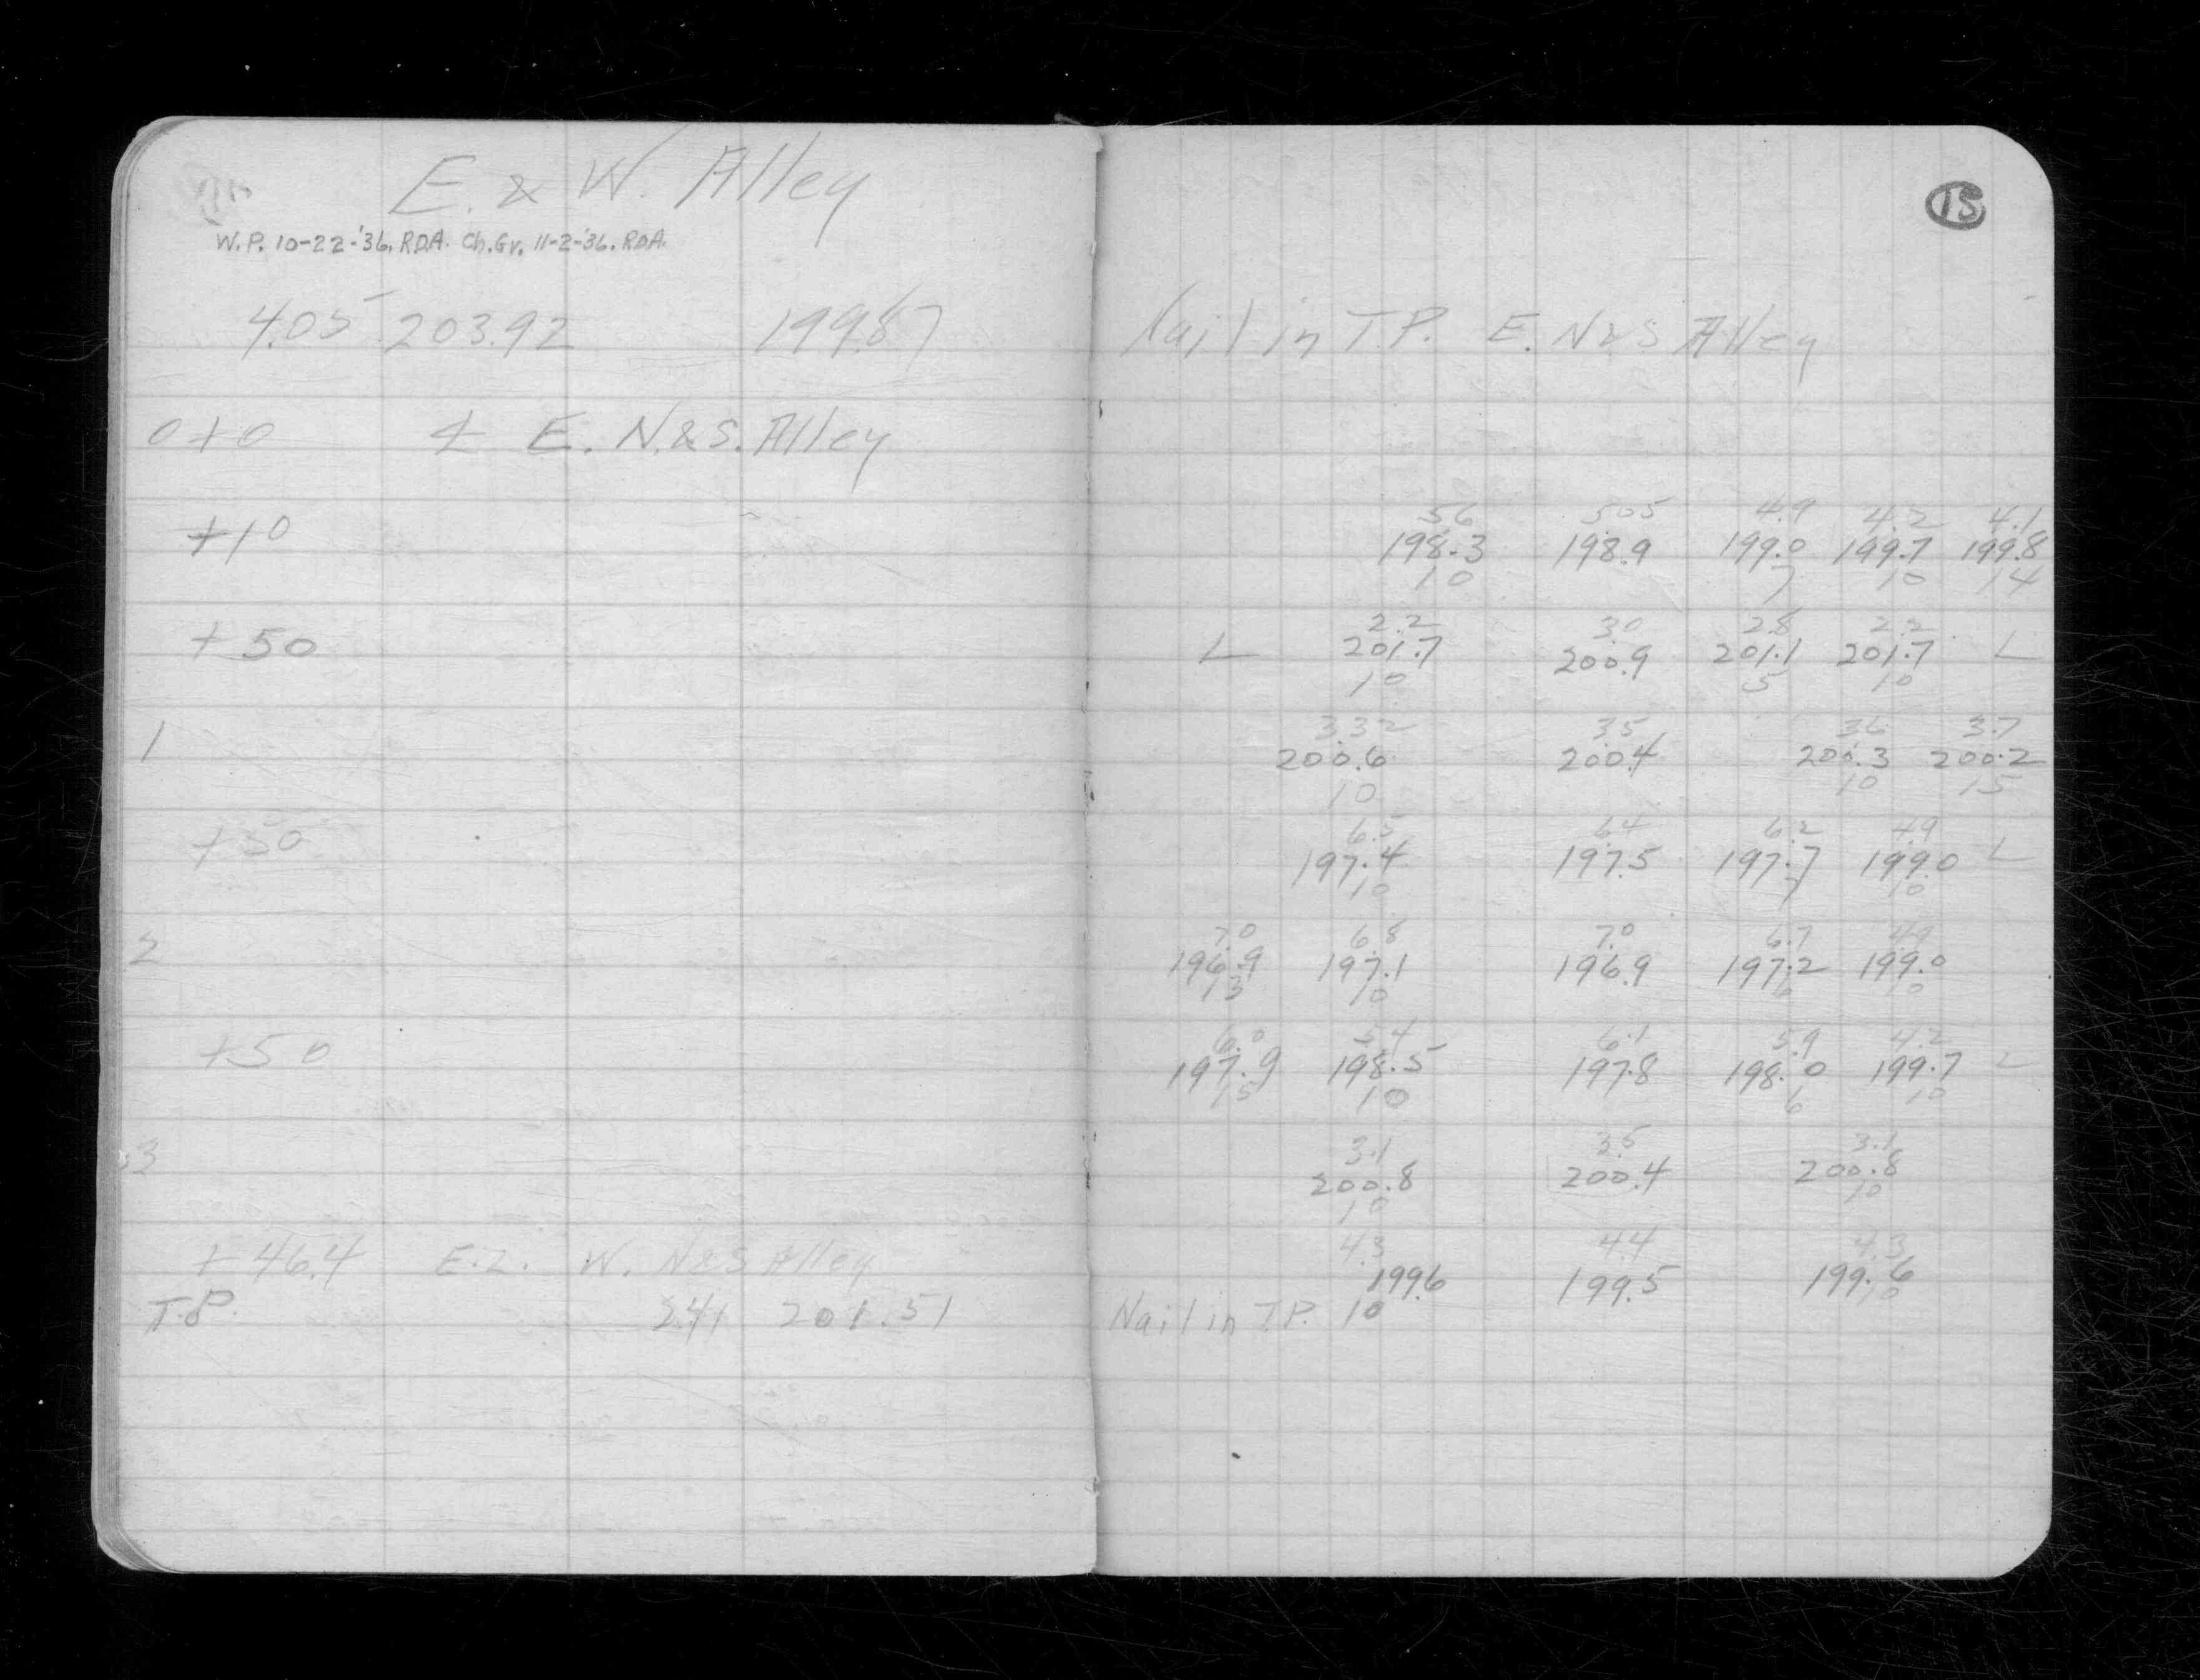 E. & W. Alley
W.P. 10-22-'36. R.D.A. Ch.Gr. 11-2-'36. R.D.A.
15
4.05 203.92 199.87 Nail in T.P. E. N&S Alley
0+0 ℄ E. N.&S. Alley
5.6 5.05 4.9 4.2 4.1
+10 198.3 198.9 199.0 199.7 199.8
10 7 10 14
2.2 3.0 2.8 2.2
+50 L 201.7 200.9 201.1 201.7 L
10 5 10
3.32 3.5 3.6 3.7
1 200.6 200.4 200.3 200.2
10 10 15
6.5 6.4 6.2 4.9
+50 197.4 197.5 197.7 199.0 L
10 7 10
7.0 6.8 7.0 6.7 4.9
2 196.9 197.1 196.9 197.2 199.0
13 10 6 10
6.0 5.4 6.1 5.9 4.2
+50 197.9 198.5 197.8 198.0 199.7 L
15 10 6 10
3.1 3.5 3.1
3 200.8 200.4 200.8
10 10
4.3 4.4 4.3
+46.4 E.L. W. N&S Alley 199.6 199.5 199.6
10
T.P. 2.41 201.51 Nail in T.P. 10